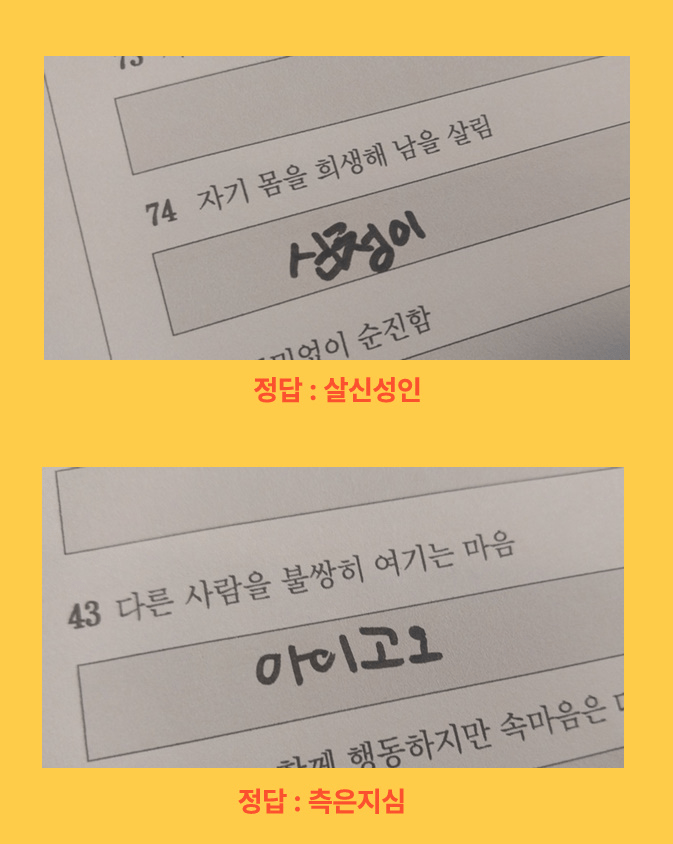 74 자기 몸을 희생해 남을 살림
심청이
없이 순진함
정답 : 살신성인
43 다른 사람을 불쌍히 여기는 마음
아이고오
함께 행동하지만 속마음은
정답 : 측은지심